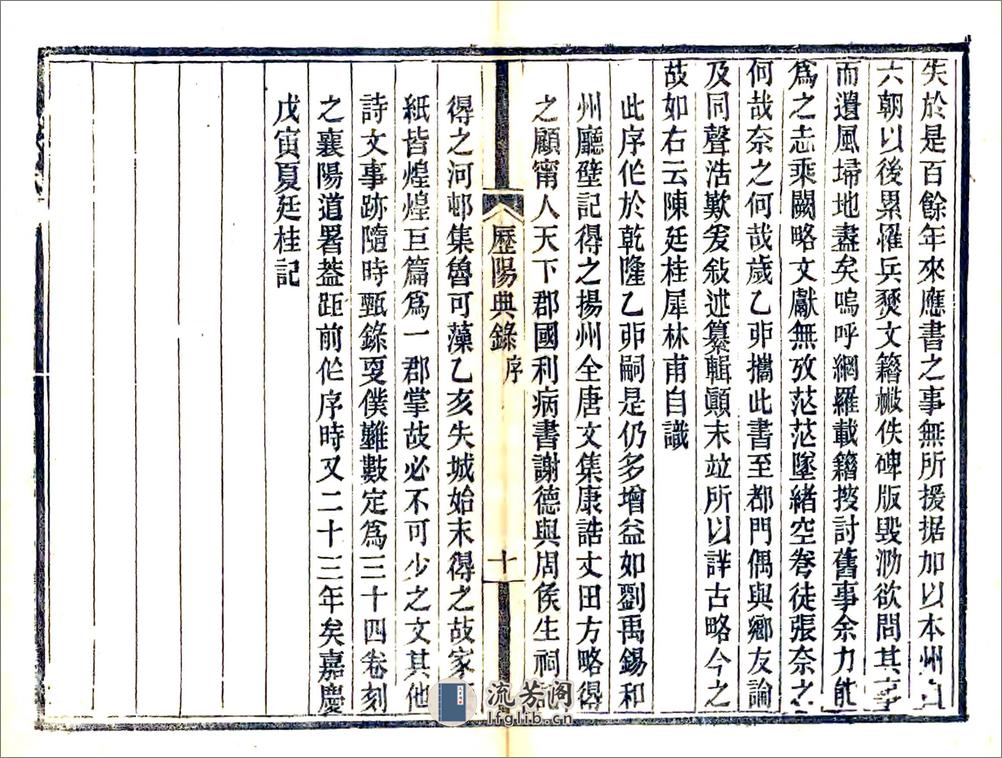 失於是百餘年來應書之事無所援据加以本州自
六朝以後累罹兵燹文籍散佚碑版毀泐欲問其事
而遺風埽地盡矣嗚呼網羅載籍搜討舊事余力能
爲之志乘闕略文獻無攷茫茫墜緒空眷徒張奈之
何哉奈之何哉歲乙卯攜此書至都門偶與鄉友論
及同聲浩歎爰敍述纂輯顛末竝所以詳古略今之
故如右云陳廷桂犀林甫自識
此序作於乾隆乙卯嗣是仍多增益如劉禹錫和
州廳壁記得之揚州全唐文集康誥丈田方略得
之顧甯人天下郡國利病書謝德與周侯生祠
歷陽典錄
序
十
得之河邨集魯可藻乙亥失城始末得之故家
紙皆煌煌巨篇爲一郡掌故必不可少之文其他
詩文事跡隨時甄錄更僕難數定爲三十四卷刻
之襄陽道署葢距前作序時又二十三年矣嘉慶
戊寅夏廷桂記
流芳阁
lfglib.cn